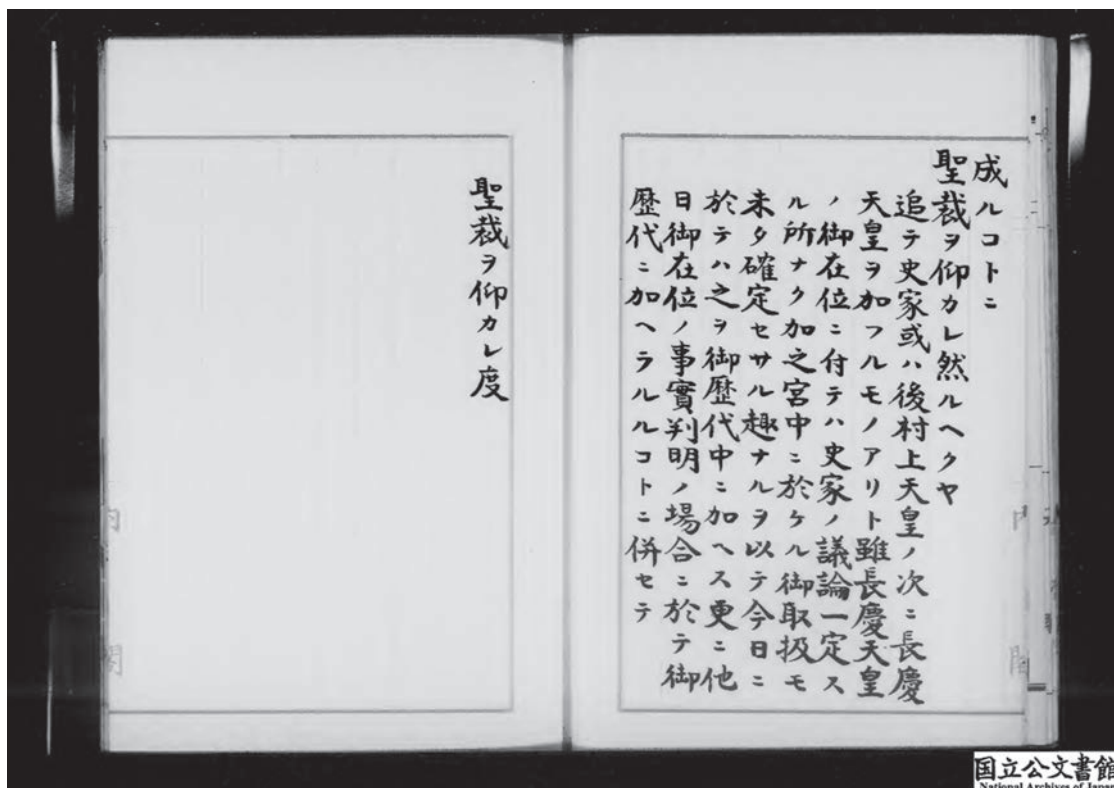 成ルコトニ
聖裁ヲ仰カレ然ルヘクヤ
追テ史家或ハ後村上天皇ノ次ニ長慶
天皇ヲ加フルモノアリト雖長慶天皇
ノ御在位ニ付テハ史家ノ議論一定ス
ル所ナク加之宮中ニ於ケル御取扱モ
未タ確定セサル趣ナルヲ以テ今日ニ
於テハ之ヲ御歴代中ニ加ヘス更ニ他
日御在位ノ事實判明ノ場合ニ於テ御
歴代ニ加ヘラルルコトニ併セテ
聖裁ヲ仰カレ度
内閣
国立公文書館
National Archives of Japan